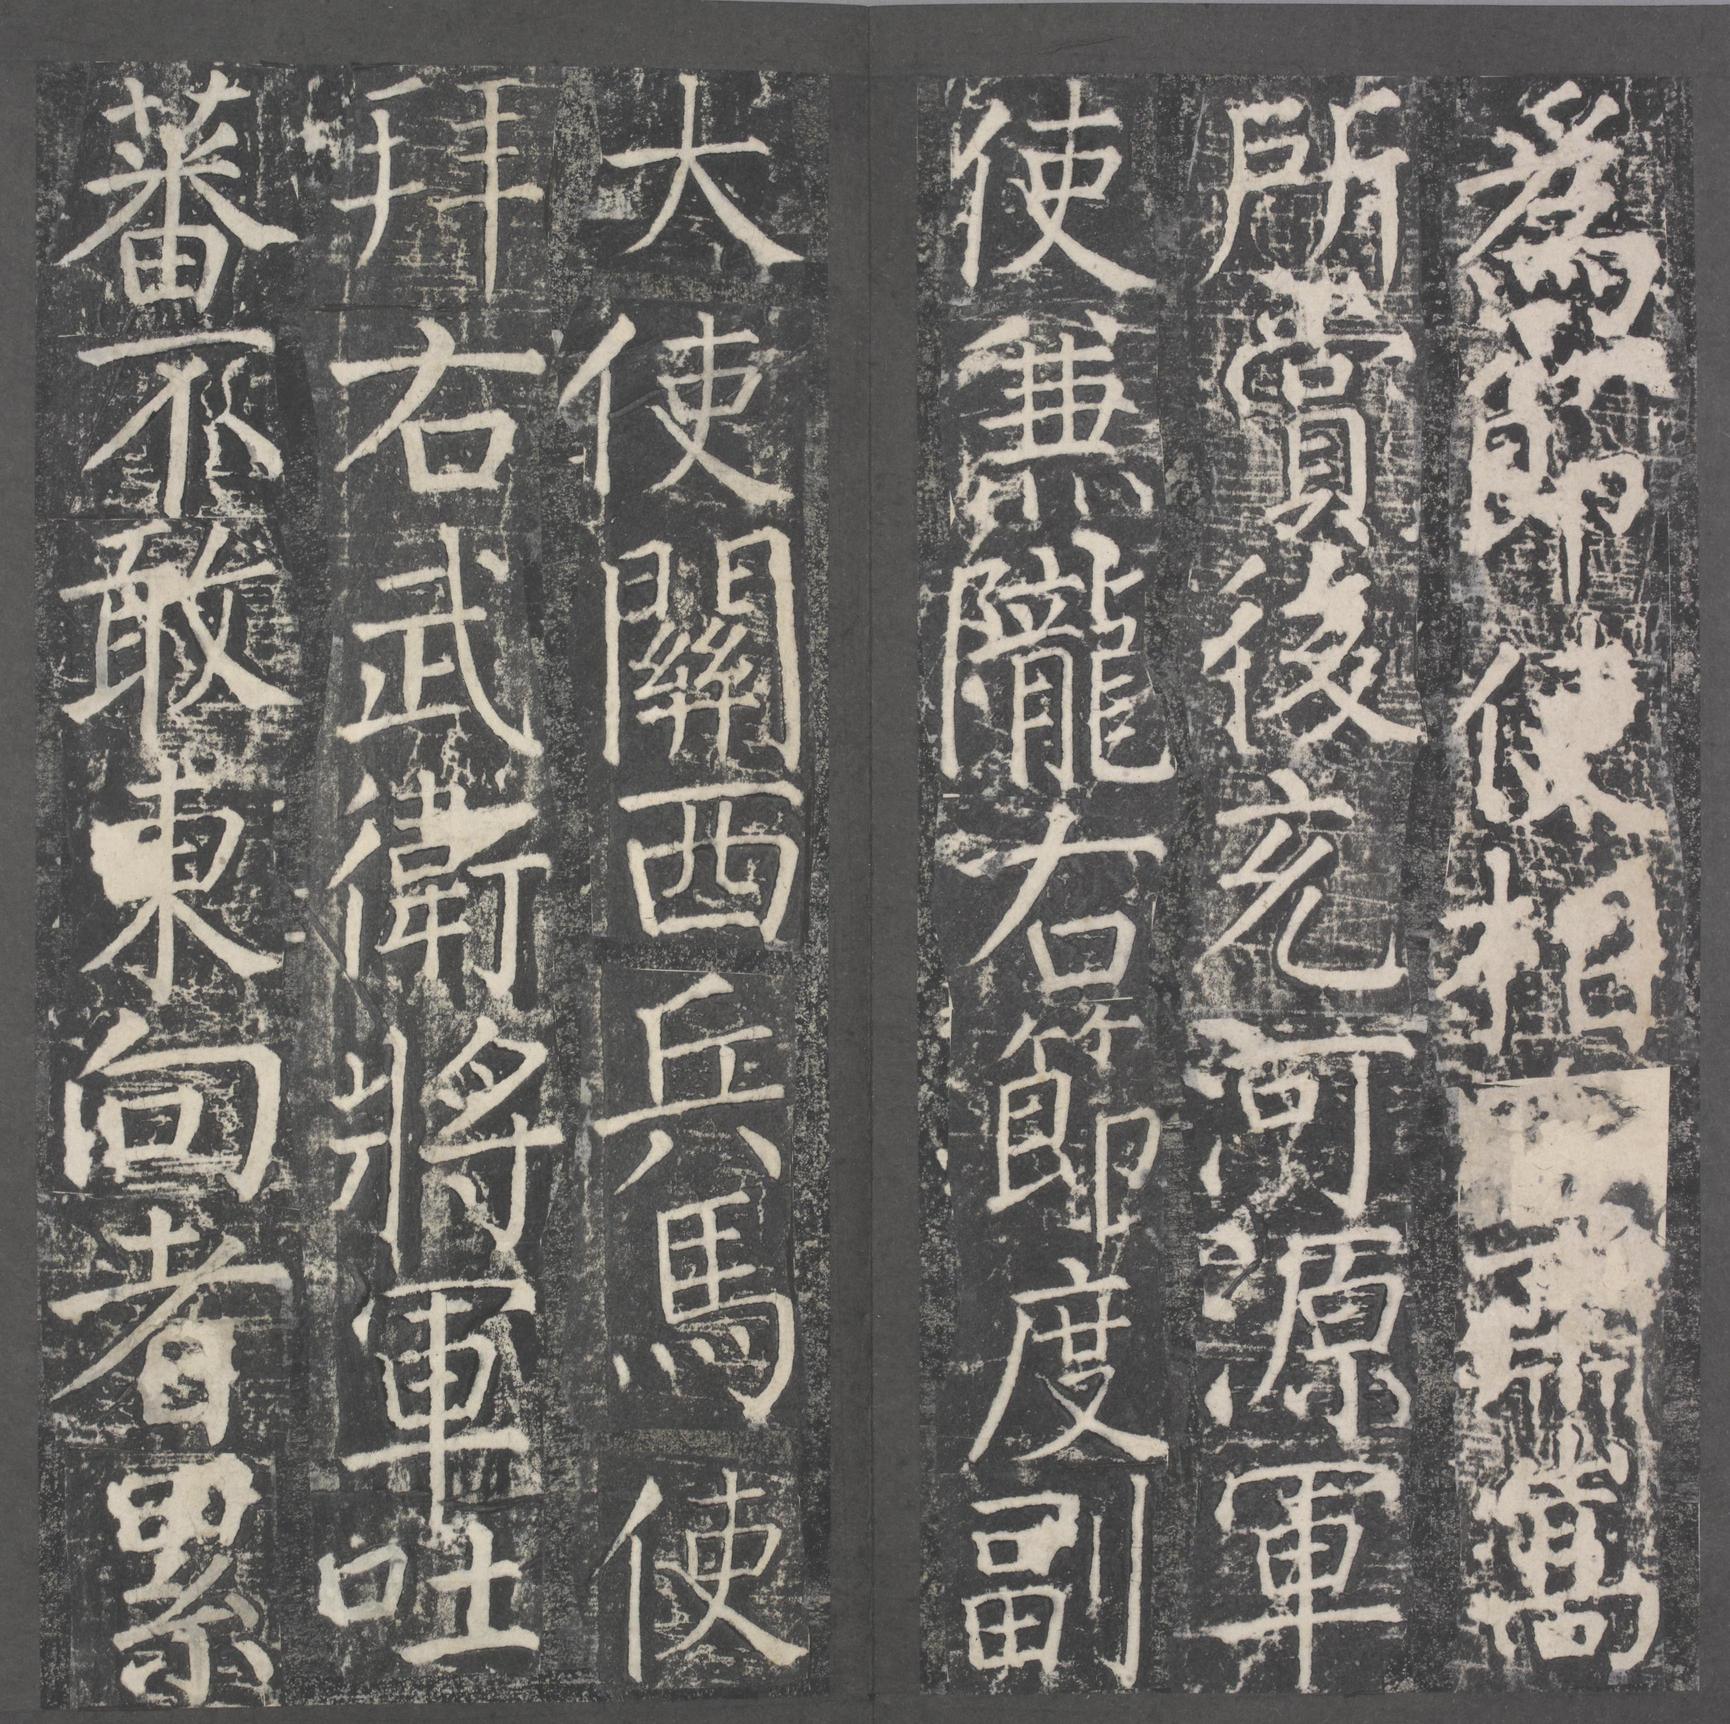 為節使相
所賞後充河源軍
使兼隴右節度副
大使關西兵馬使
拜右武衛將軍吐
蕃不敢東向者累